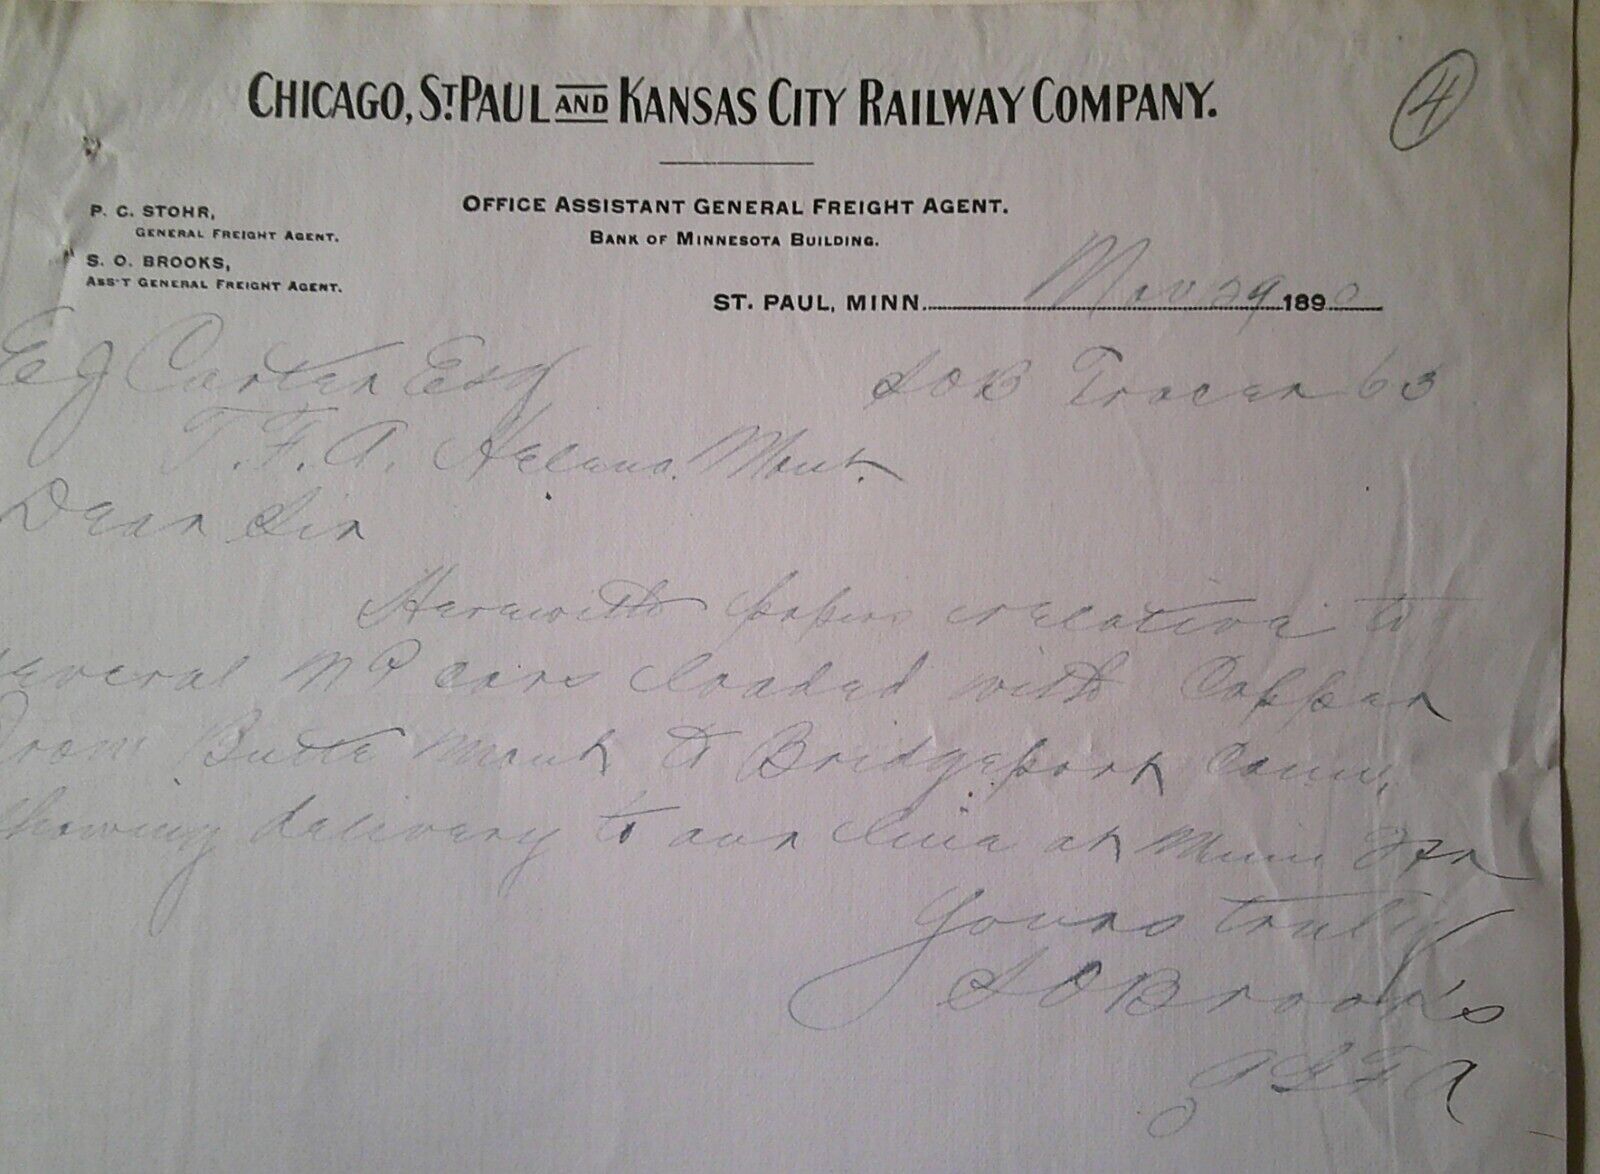 4
CHICAGO, ST. PAUL AND KANSAS CITY RAILWAY COMPANY.
OFFICE ASSISTANT GENERAL FREIGHT AGENT.
BANK OF MINNESOTA BUILDING.
P. C. STOHR,
GENERAL FREIGHT AGENT.
S. O. BROOKS,
ASS'T GENERAL FREIGHT AGENT.
ST. PAUL, MINN. Nov 29 1890
E J Carter Esq
SOB Tracer 63
T. F. A. Helena. Mont.
Dear Sir
Herewith papers relative to
several NP cars loaded with Copper
From Butte Mont to Bridgeport Conn,
showing delivery to our line at Minn Tfr
Yours truly
S O Brooks
A G F A